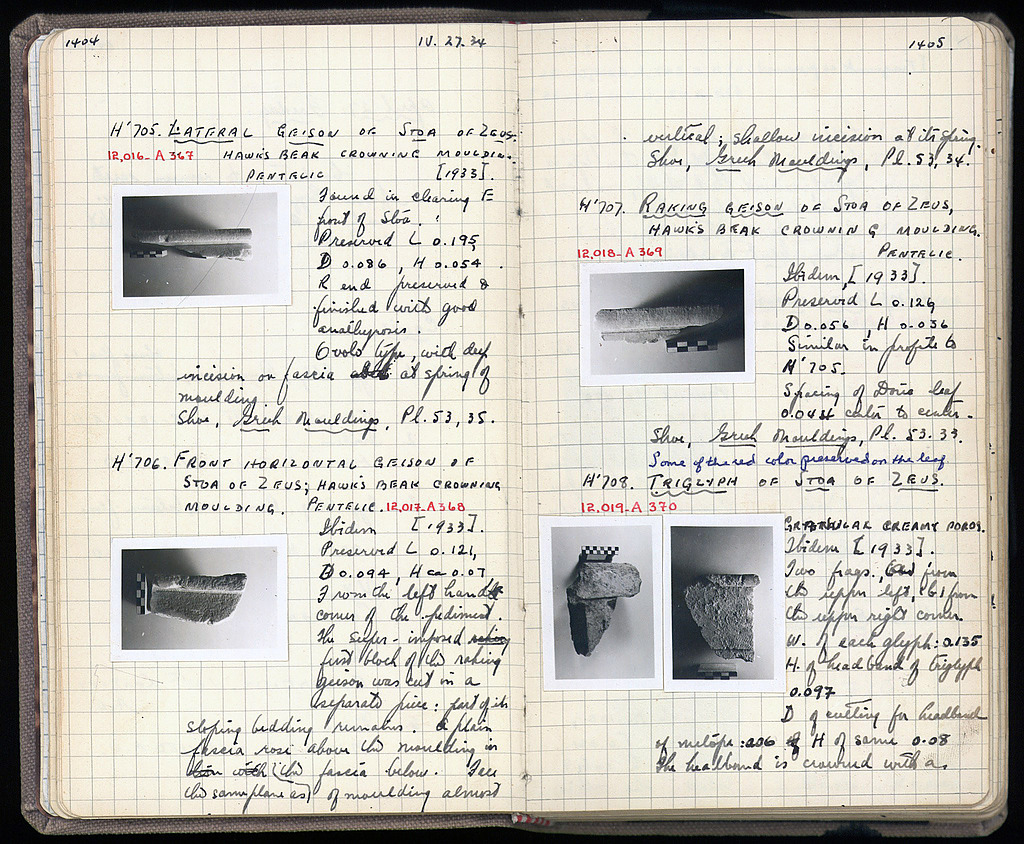 1404
IV. 27. 34
H'705. LATERAL GEISON OF STOA OF ZEUS.
12,016-A 367 HAWK'S BEAK CROWNING MOULDING.
PENTELIC [1933].
Found in clearing E
front of Stoa.
Preserved L 0.195,
D 0.086, H 0.054.
R end preserved &
finished with good
anathyrosis.
Ovolo type, with deep
incision on fascia at spring of
moulding.
Shoe, Greek Mouldings, Pl. 53, 35.
H'706. FRONT HORIZONTAL GEISON OF
STOA OF ZEUS; HAWK'S BEAK CROWNING
MOULDING. PENTELIC. 12,017-A 368
Ibidem [1933].
Preserved L 0.121,
D 0.094, H ca 0.07
From the left hand
corner of the pediment
the super-imposed
first block of the raking
geison was cut in a
separate piece: part of its
sloping bedding remains. A plain
fascia rose above the moulding in
(the fascia below. Face
the same plane as) of moulding almost
1405.
vertical; shallow incision at its spring.
Shoe, Greek Mouldings, Pl. 53, 34.
H'707. RAKING GEISON OF STOA OF ZEUS,
HAWK'S BEAK CROWNING MOULDING.
12,018-A 369 PENTELIC.
Ibidem, [1933].
Preserved L 0.129
D 0.056, H 0.036
Similar in profile to
H'705.
Spacing of Doric leaf
center to center.
Shoe, Greek Mouldings, Pl. 53. 33.
Some of the red color preserved on the leaf
H'708. TRIGLYPH OF STOA OF ZEUS.
12,019-A 370
CREAMY POROS.
Ibidem [1933].
Two frags., from
the upper left, (b) from
the upper right corner.
W. of each glyph: 0.135
H. of headband of triglyph
0.097
D of cutting for headband
of metope: .006 H of same 0.08
The headband is crowned with a